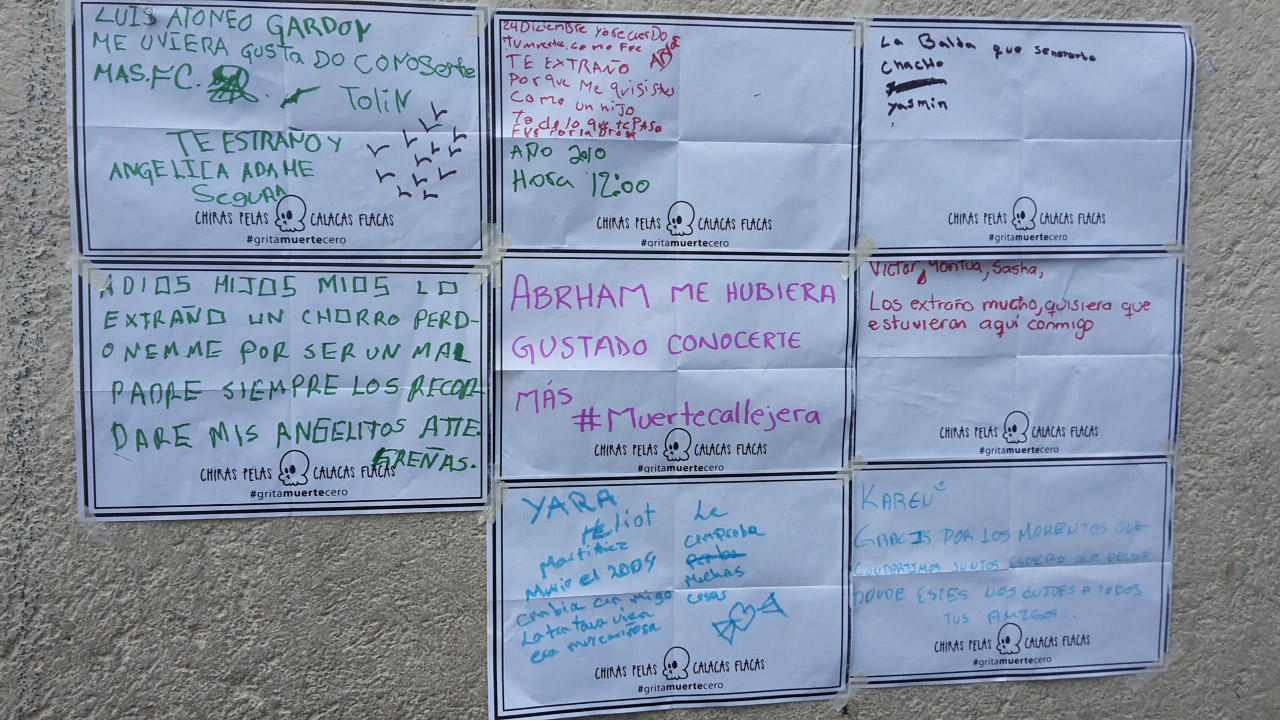 LUIS ATONEO GARDOY
ME UVIERA GUSTA DO CONOSerte
MAS.FC.
TOLIN
TE ESTRAÑO Y
ANGELICA ADAME
Segura
CHIRAS PELAS CALACAS FLACAS
#gritamuertecero
24 Diciembre yo recuerDo
tu muerte, como Fue
TE EXTRAÑO
Porque Me quisistes
Como un hijo
To do lo que te PASo
FUE Por la
AÑO 2010
Hora 12:00
CHIRAS PELAS CALACAS FLACAS
#gritamuertecero
La Balda que
Chacho
yasmin
CHIRAS PELAS CALACAS FLACAS
#gritamuertecero
ADIOS HIJOS MIOS LO
EXTRAÑO UN CHORRO PERD-
ONEMME POR SER UN MAL
PADRE SIEMPRE LOS RECOR-
DARE MIS ANGELITOS ATTE.
GREÑAS.
CHIRAS PELAS CALACAS FLACAS
#gritamuertecero
ABRHAM ME HUBIERA
GUSTADO CONOCERTE
MÁS #Muertecallejera
CHIRAS PELAS CALACAS FLACAS
#gritamuertecero
Victor, Sasha,
Los extraño mucho, quisiera que
estuvieran aquí conmigo
CHIRAS PELAS CALACAS FLACAS
#gritamuertecero
YARA
Martinez
Murio el 2009
cambia con migo
La tratava vien
era muy cariñosa
Le
compraba
Muchas
cosas
CHIRAS PELAS CALACAS FLACAS
#gritamuertecero
KAREN
GRACIS POR LOS MOMENTOS QUE
COMPARTIMOS JUNTOS ESPERO QUE DESDE
DONDE ESTES NOS CUIDES A TODOS
TUS AMIGOS...
CHIRAS PELAS CALACAS FLACAS
#gritamuertecero